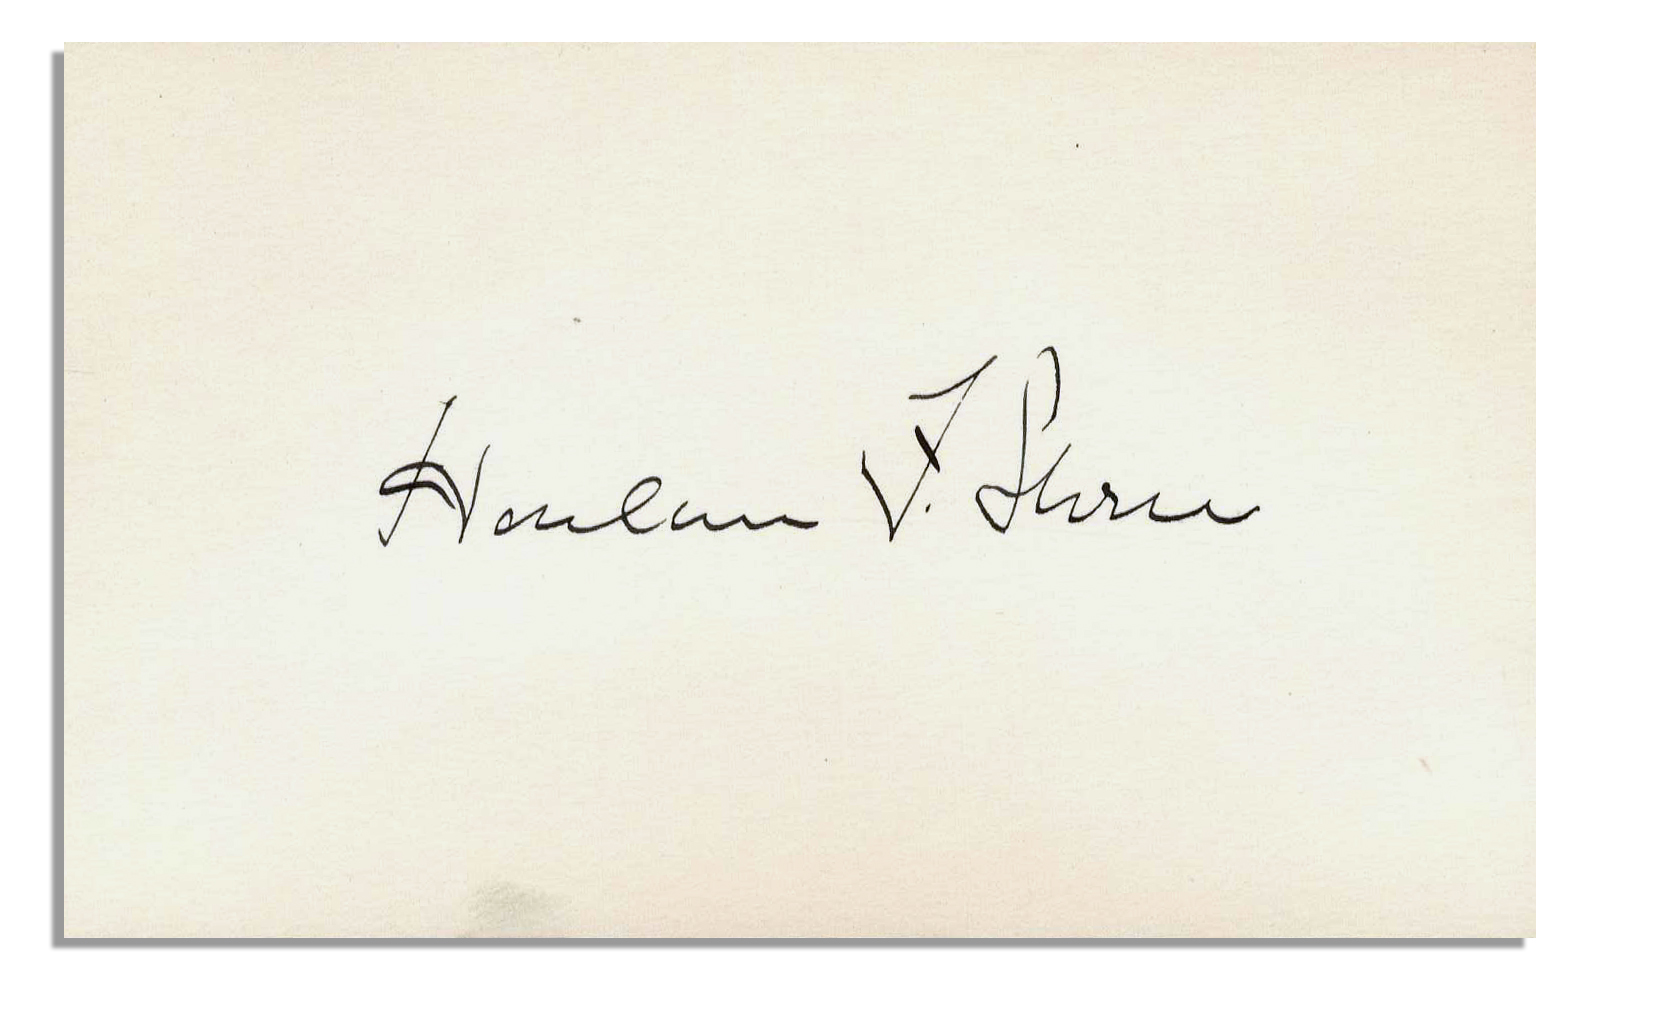 Harlan F. Stone